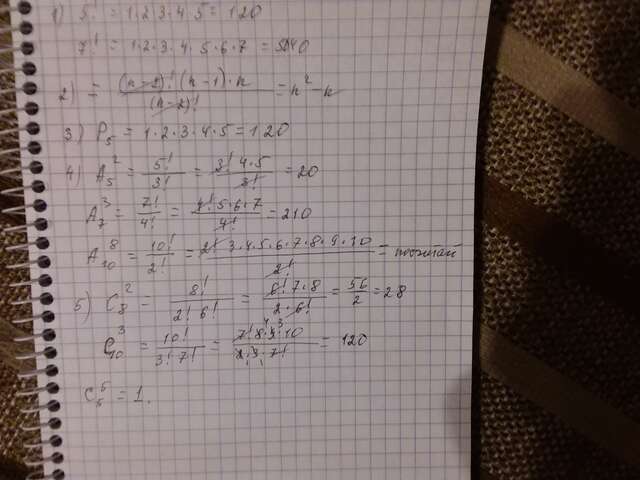 1) 5! = 1·2·3·4·5 = 120
7! = 1·2·3·4·5·6·7 = 5040
2) = (n-2)!·(n-1)·n / (n-2)! = n² - n
3) P₅ = 1·2·3·4·5 = 120
4) A₅² = 5! / 3! = 3!·4·5 / 3! = 20
A₇³ = 7! / 4! = 4!·5·6·7 / 4! = 210
A₁₀⁸ = 10! / 2! = 2!·3·4·5·6·7·8·9·10 / 2! =
5) C₈² = 8! / 2!·6! = 6!·7·8 / 2·6! = 56 / 2 = 28
C₁₀³ = 10! / 3!·7! = 7!·8·9·10 / 2·3·7! = 120
C₅⁵ = 1.